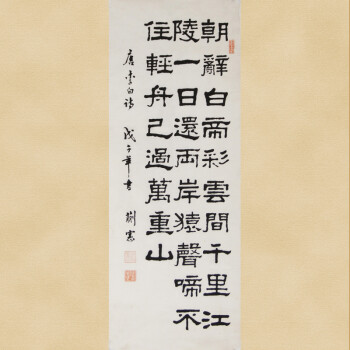 朝辭白帝彩雲間千里江
陵一日還両岸猿聲啼不
住輕舟已過萬重山
唐李白詩 戊子年書